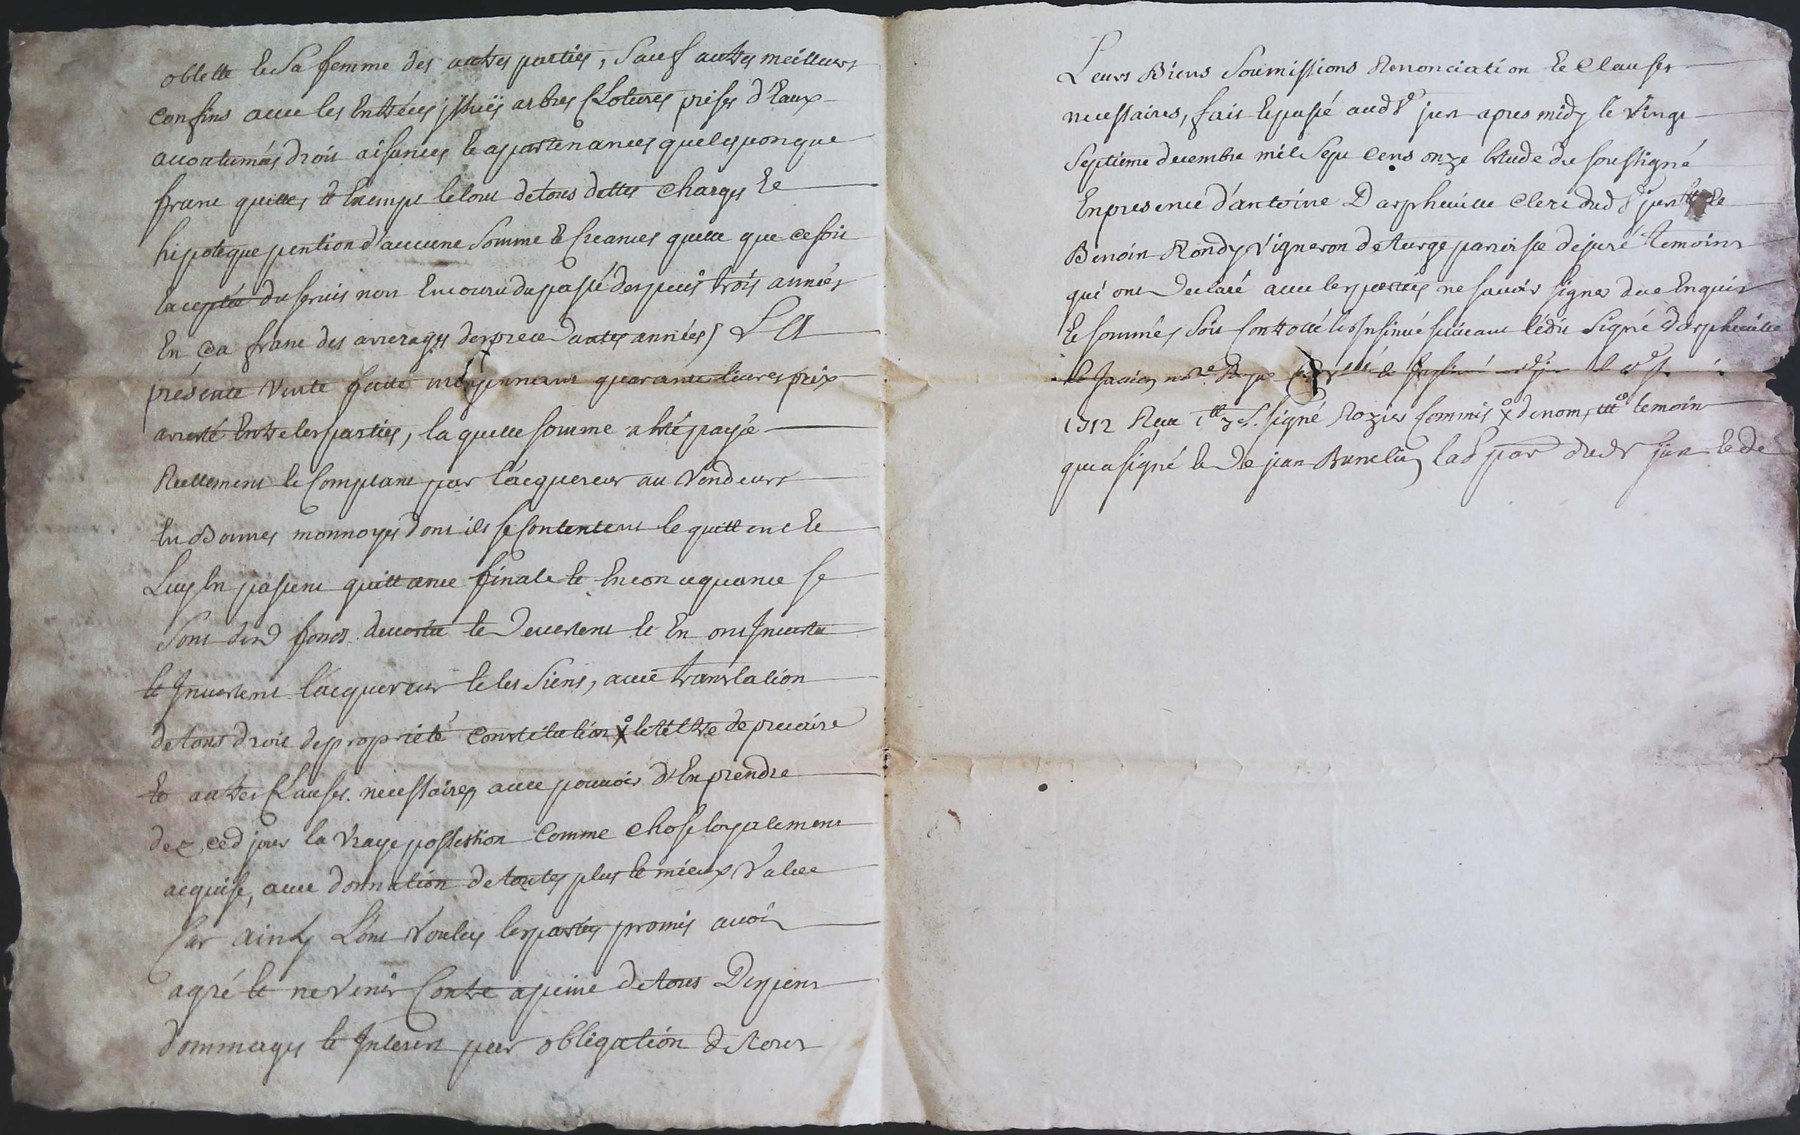 oblette et Sa femme des autres parties, Sauf autres meilleurs
confins avec les Entrées jssuës arbres Clotures prises d'Eaux
accoutumées droit aisances et appartenances quelsconque
franc quitte et Exempt le tout de tous dettes charges Et
hipoteque pention d'aucune Somme et Creances quelle que ce soit
Excepté du servis non Encouru du passé despuis trois années
En ça franc des arrerages des precedantes années, LA
présente Vente faitte moyennant quarante livres prix
arresté Entre les parties, laquelle somme a Eté payée
Reellement et Comptant par l'acquereur au Vendeurs
En Bonnes monnoyes dont ils se contentent le quittent Et
Luy En passent quittance finale et En consequance se
Sont dud fonds devestu et Devestent et En ont Jnvestu
et Jnvestent l'acquereur et les Siens, avec translation
de tous droit de proprieté Constitution x et tiltre de precaire
et autres Clauses necessaires avec pouvoir d'En prendre
dez ced jour la Vraye possession Comme chose loyalement
acquise, avec donnation de toutes plus et mieux Value
Car ainsy L'ont Voulu les parties promis avoir
agré et ne venir Contre a peine de tous Despens
dommages et Jnterest par obligation de tous
Leurs Biens Soumissions Renonciation Et Clauses
necessaires, fait et passé aud St jean apres midy le Vingt
Septieme decembre mil Sept Cens onze Etude du soussigné
En presence d'antoine Darpheuille Clerc dud St jean et de
Benoit Rondy Vigneron de Turge paroisse de juré temoins
qui ont Declaré avec les parties ne savoir signer de ce Enquis
et sommés Soit Controllé et Insinué suivant l'édit Signé darpheuille
1712 Reçu Signé Rozier Commis x de nom, temoin
qui a signé et de jean Brunelin lad par dud St jean et de